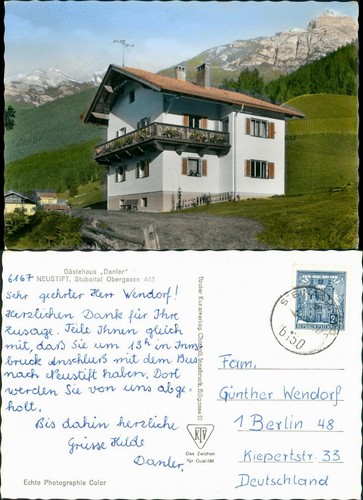 6167
Gästehaus „Danler"
NEUSTIFT, Stubaital Obergasse 442
Sehr geehrter Herr Wendorf!
Herzlichen Dank für Ihre
Zusage. Teile Ihnen gleich
mit, daß Sie um 13h in Inns
bruck Anschluß mit dem Bus
nach Neustift haben. Dort
werden Sie von uns abge-
holt.
Bis dahin herzliche
Grüsse Hilde
Danler.
Echte Photographie Color
Tiroler Kunstverlag Chizzali, Innsbruck,
KTV
Das Zeichen
für Qualität
REPUBLIK ÖSTERREICH
Fam.
Günther Wendorf
1 Berlin 48
Kiepertstr. 33
Deutschland